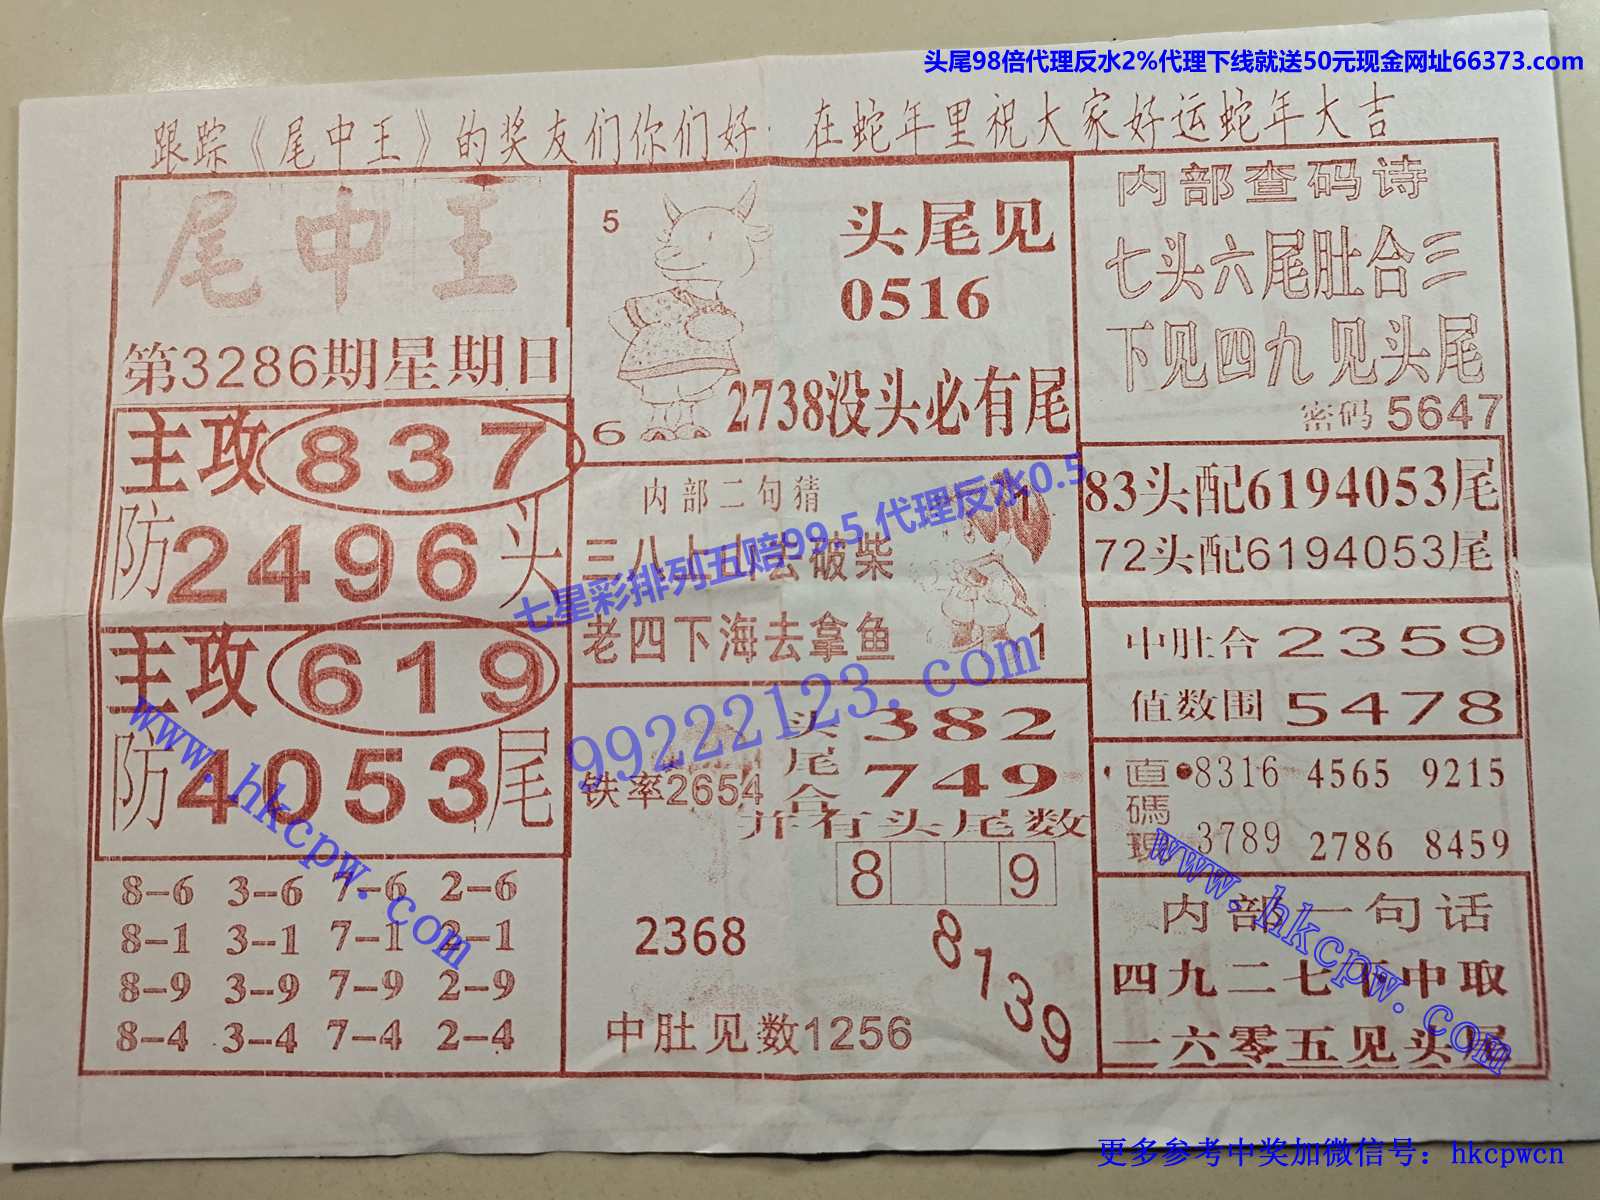 头尾98倍代理反水2%代理下线就送50元现金网址66373.com
跟踪《尾中王》的奖友们你们好 在蛇年里祝大家好运蛇年大吉
尾中王
第3286期星期日
主攻837
防2496头
主攻619
防4053尾
8-6 3-6 7-6 2-6
8-1 3-1 7-1 2-1
8-9 3-9 7-9 2-9
8-4 3-4 7-4 2-4
5
头尾见
0516
6
2738没头必有尾
内部二句猜
1
三八上山去破柴
老四下海去拿鱼
1
头尾合
382
749
铁率2654
并有头尾数
8 9
2368
8139
中肚见数1256
内部查码诗
七头六尾肚合三
下见四九见头尾
密码5647
83头配6194053尾
72头配6194053尾
中肚合2359
值数围5478
直碼現
8316 4565 9215
3789 2786 8459
内部一句话
四九二七下中取
一六零五见头尾
七星彩排列五赔99.5 代理反水0.5
99222123.com
www.hkcpw.com
www.hkcpw.com
更多参考中奖加微信号：hkcpwcn